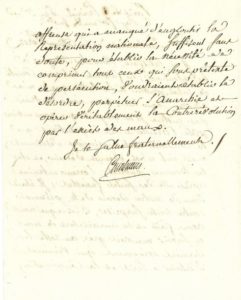 affreuse qui a manqué d'engloutir la
Représentation nationale, suffisent sans
doute, pour établir la nécessité de
comprimer tous ceux qui sous prétexte
de persécution, voudraient établir le
désordre, perpétuer l'Anarchie et
opérer véritablement la Contrerévolution
par l'excès des maux.
Je te salue fraternellement.